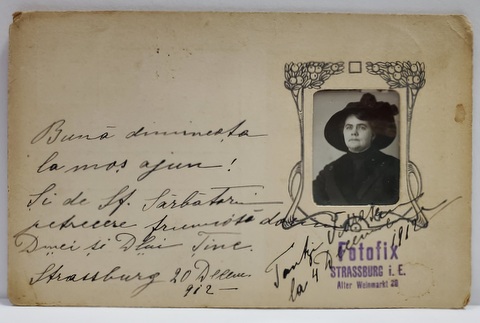 Bună dimineața
la moș ajun!
Și de Sf. Sărbători
petrecere frumoasă
Dnei și Dlui Tinc.
Strassburg 20 Decem.
912 —
la 4 1912
Fotofix
STRASSBURG i. E.
Alter Weinmarkt 36